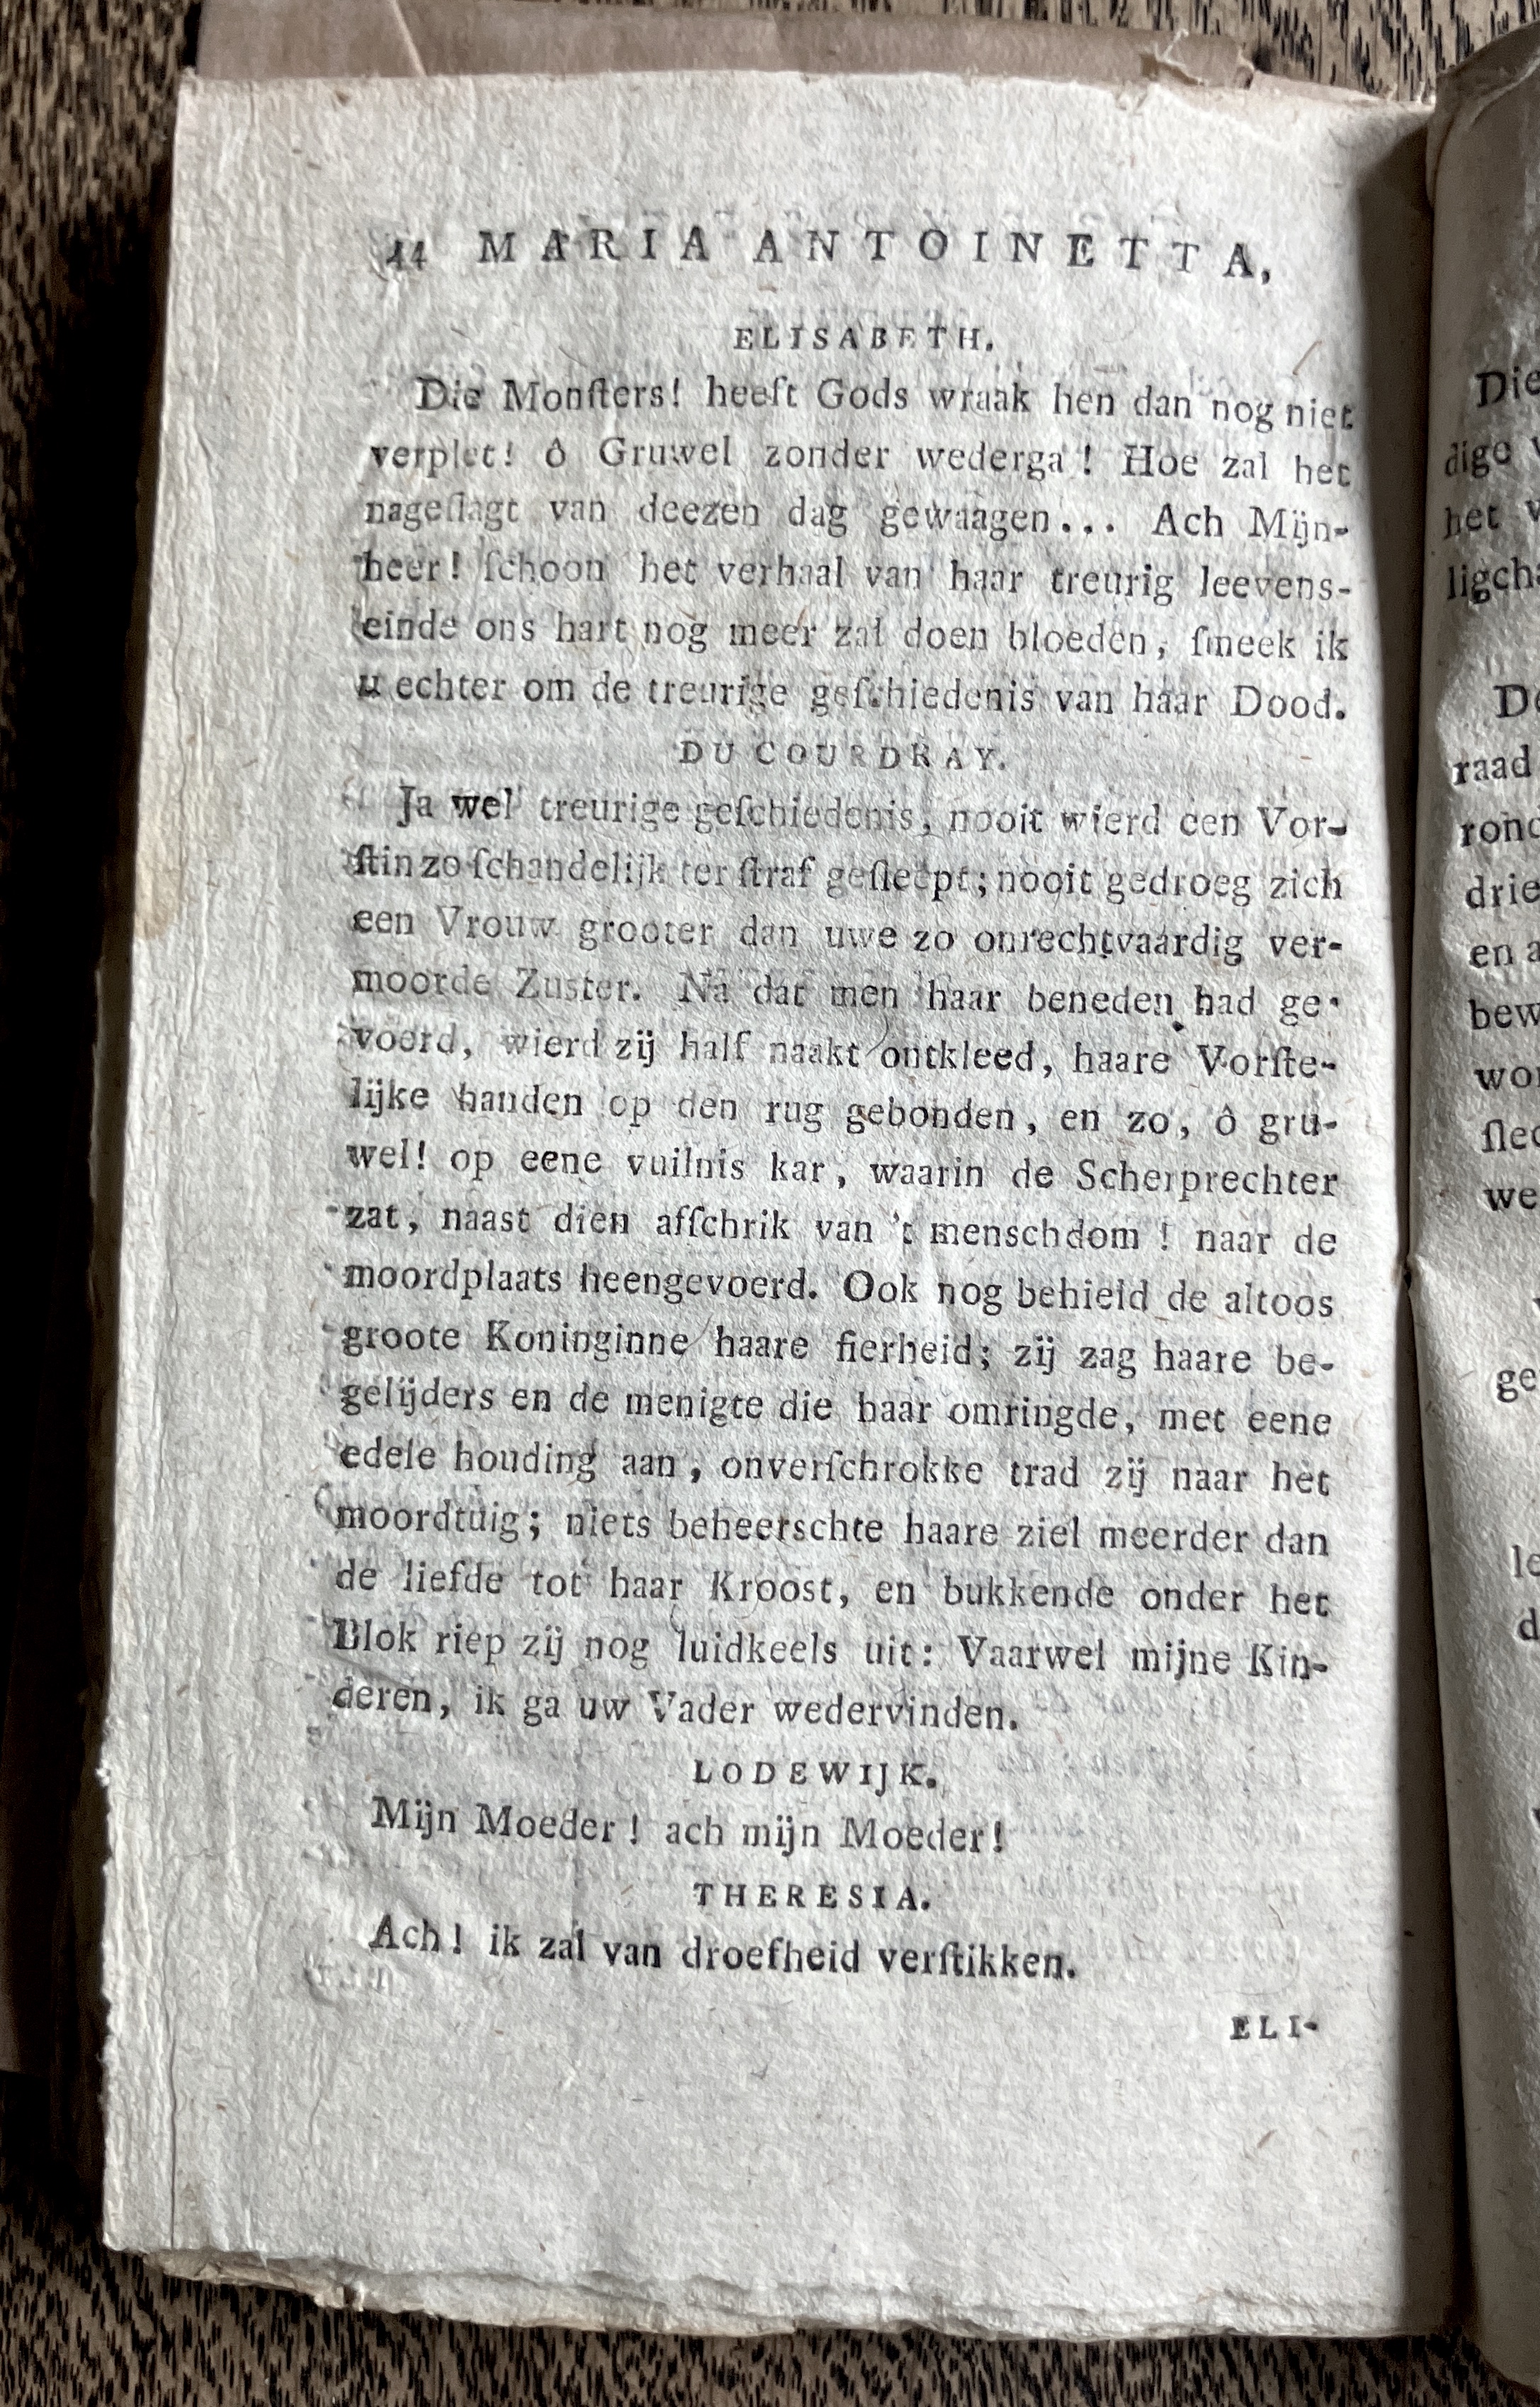 44 MARIA ANTOINETTA,
ELISABETH.
Die Monſters! heeft Gods wraak hen dan nog niet
verplet! ô Gruwel zonder wederga! Hoe zal het
nageſlagt van deezen dag gewaagen... Ach Mijn-
heer! ſchoon het verhaal van haar treurig leevens-
einde ons hart nog meer zal doen bloeden, ſmeek ik
u echter om de treurige geſchiedenis van haar Dood.
DU COURDRAY.
Ja wel treurige geſchiedenis, nooit wierd een Vor-
ſtin zo ſchandelijk ter ſtraf geſleept; nooit gedroeg zich
een Vrouw grooter dan uwe zo onrechtvaardig ver-
moorde Zuster. Na dat men haar beneden had ge-
voerd, wierd zij half naakt ontkleed, haare Vorſte-
lijke handen op den rug gebonden, en zo, ô gru-
wel! op eene vuilnis kar, waarin de Scherprechter
zat, naast dien afſchrik van 't menschdom! naar de
moordplaats heengevoerd. Ook nog behield de altoos
groote Koninginne haare fierheid; zij zag haare be-
gelijders en de menigte die haar omringde, met eene
edele houding aan, onverſchrokke trad zij naar het
moordtuig; niets beheerschte haare ziel meerder dan
de liefde tot haar Kroost, en bukkende onder het
Blok riep zij nog luidkeels uit: Vaarwel mijne Kin-
deren, ik ga uw Vader wedervinden.
LODEWIJK.
Mijn Moeder! ach mijn Moeder!
THERESIA.
Ach! ik zal van droefheid verſtikken.
ELI-
Die
dige
het
ligch
De
raad
rond
drie
en a
bew
wor
ſlec
we
ge
le
d